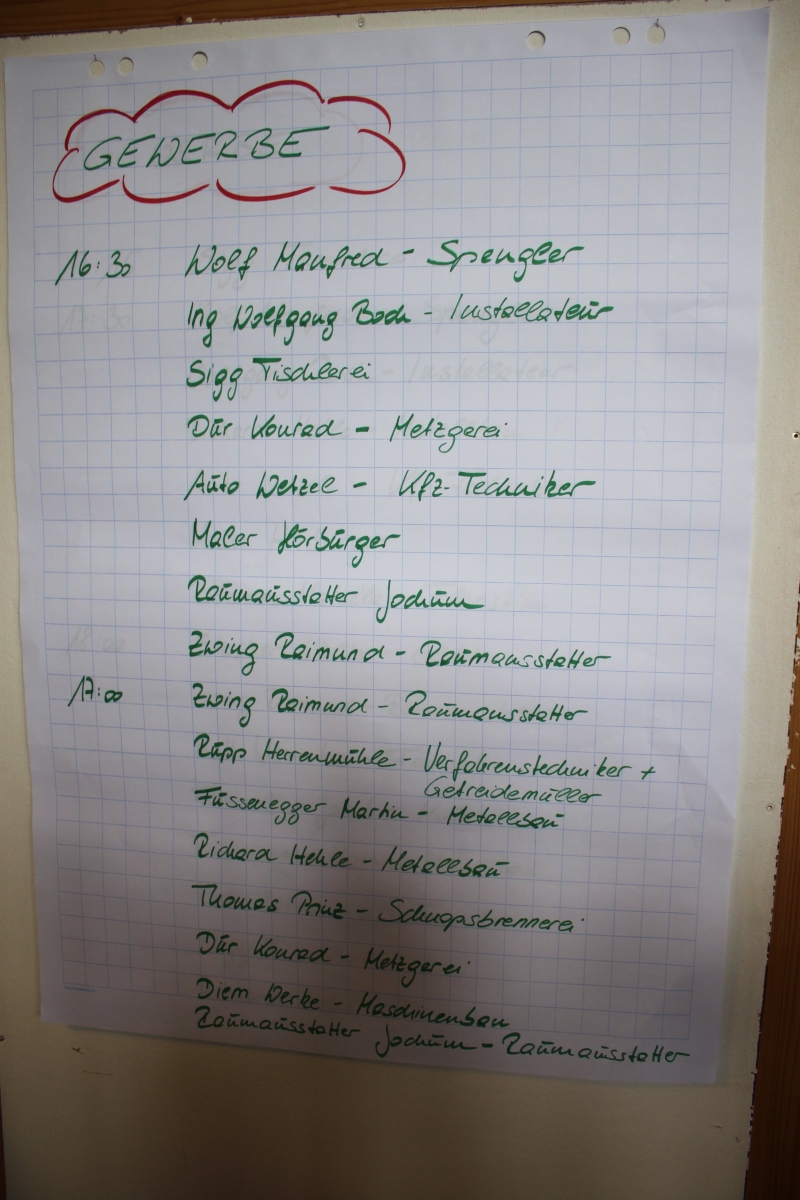 GEWERBE
16:30 Wolf Manfred - Spengler
Ing Wolfgang Boch - Installateur
Sigg Tischlerei
Dür Konrad - Metzgerei
Auto Wetzel - Kfz-Techniker
Maler Hörburger
Raumausstatter Jochum
Zwing Raimund - Raumausstatter
17:00 Zwing Raimund - Raumausstatter
Rupp Herrenmühle - Verfahrenstechniker +
Getreidemüller
Füssenegger Martin - Metallbau
Richard Hehle - Metallbau
Thomas Prinz - Schnapsbrennerei
Dür Konrad - Metzgerei
Diem Werke - Maschinenbau
Raumausstatter Jochum - Raumausstatter